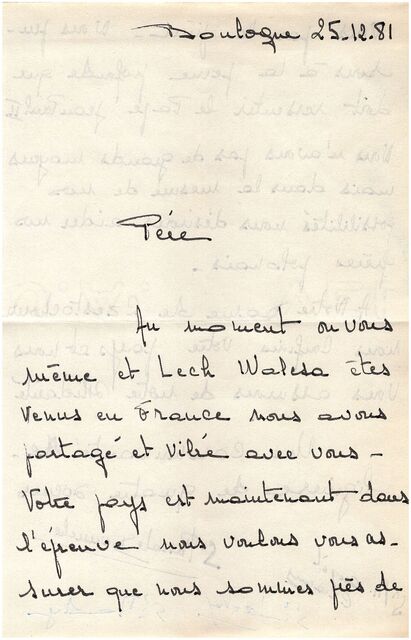 Boulogne 25.12.81
Père
Au moment où vous
même et Lech Walesa êtes
venus en France nous avons
partagé et vibré avec vous -
Votre pays est maintenant dans
l'épreuve nous voulons vous as-
surer que nous sommes près de